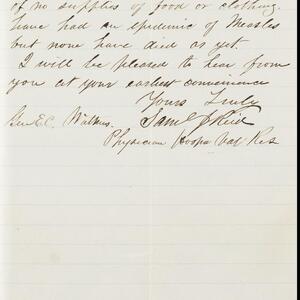 of no supplies of food or clothing.
have had an epidemic of Measles
but none have died as yet.
I will be pleased to hear from
you at your earliest convenience
Yours Truly
Gen E.C. Watkins. Saml J Reid
Physician Hoopa Val Res